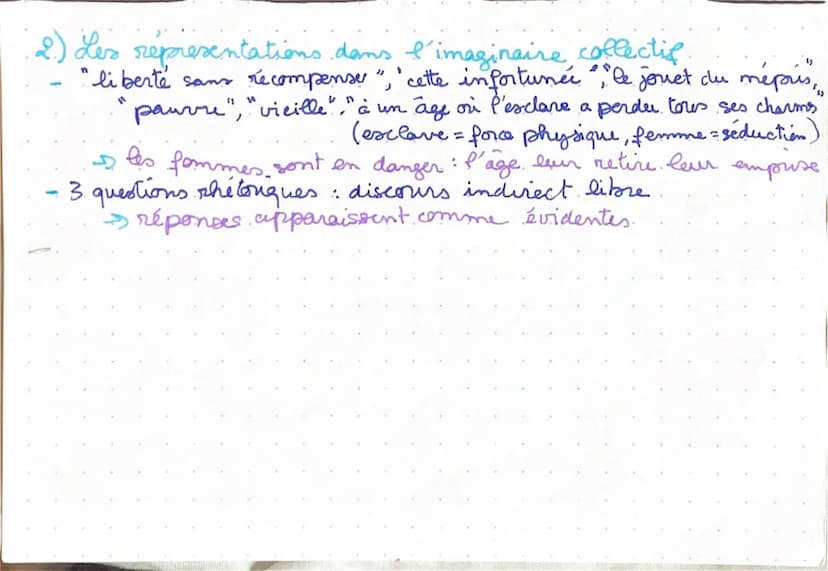 2) Les représentations dans l'imaginaire collectif
- "liberté sans récompense", "cette infortunée", "le jouet du mépris",
"pauvre", "vieille", "à un âge où l'esclave a perdu tous ses charmes"
(esclave = force physique, femme = séduction)
→ les femmes sont en danger : l'âge leur retire leur emprise
- 3 questions rhétoriques : discours indirect libre
→ réponses apparaissent comme évidentes.